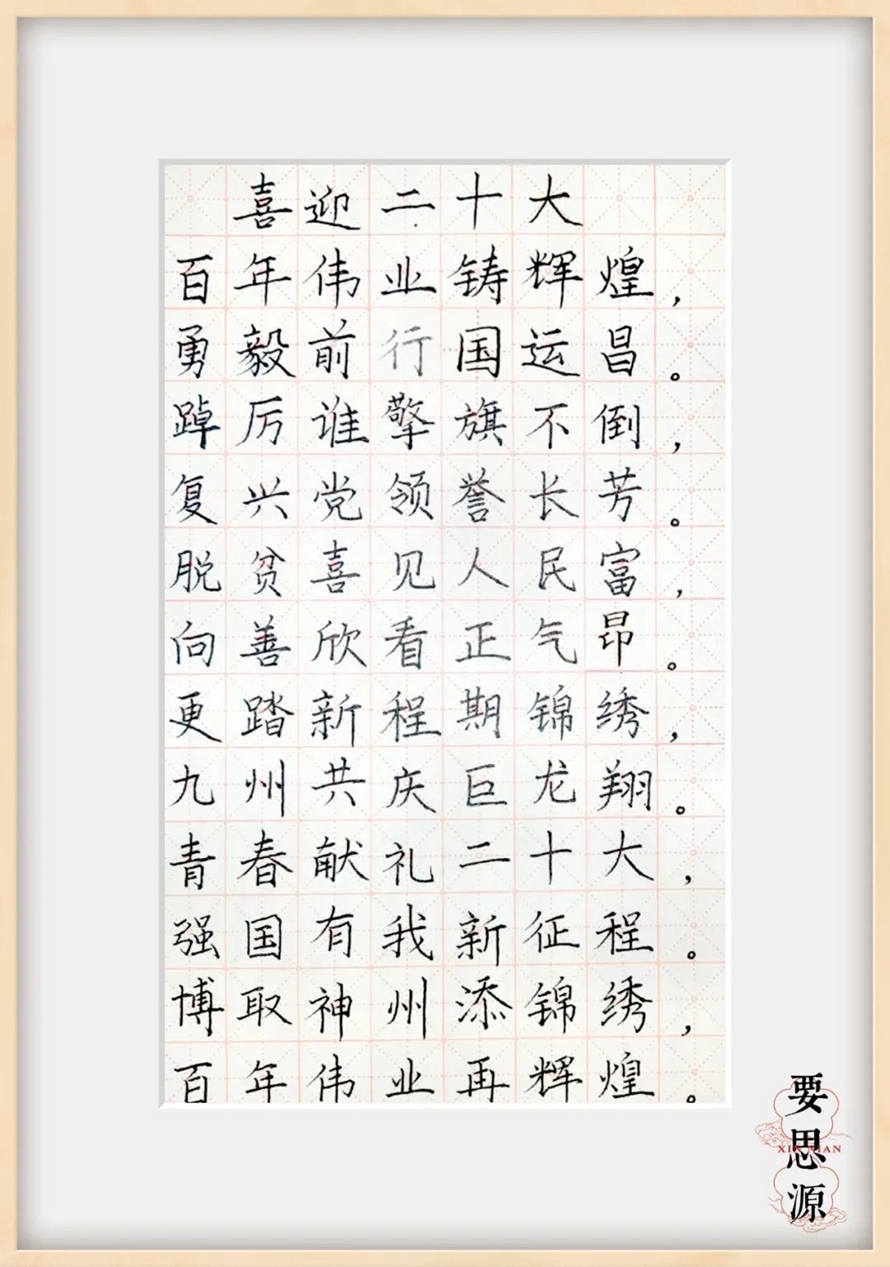 喜迎二十大
百年伟业铸辉煌，
勇毅前行国运昌。
踔厉谁擎旗不倒，
复兴党领誉长芳。
脱贫喜见人民富，
向善欣看正气昂。
更踏新程期锦绣，
九州共庆巨龙翔。
青春献礼二十大，
强国有我新征程。
博取神州添锦绣，
百年伟业再辉煌。
要思源
XIN NIAN